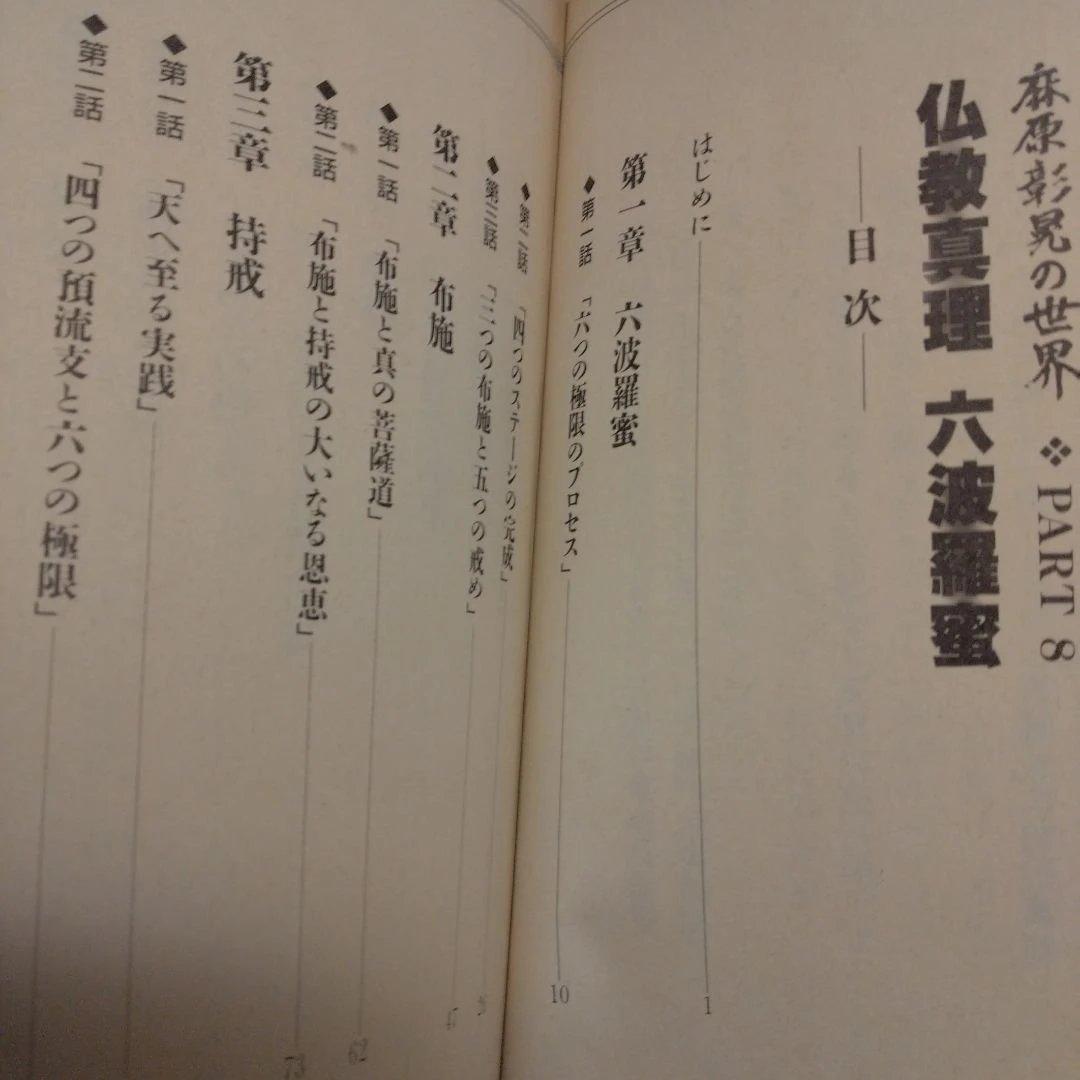 麻原彰晃の世界 ❖ PART 8
仏教真理 六波羅蜜
――目次――
はじめに 1
第一章 六波羅蜜
◆第一話「六つの極限のプロセス」 10
◆第二話「四つのステージの完成」
◆第三話「三つの布施と五つの戒め」 47
第二章 布施
◆第一話「布施と真の菩薩道」 62
◆第二話「布施と持戒の大いなる恩恵」 73
第三章 持戒
◆第一話「天へ至る実践」
◆第二話「四つの預流支と六つの極限」